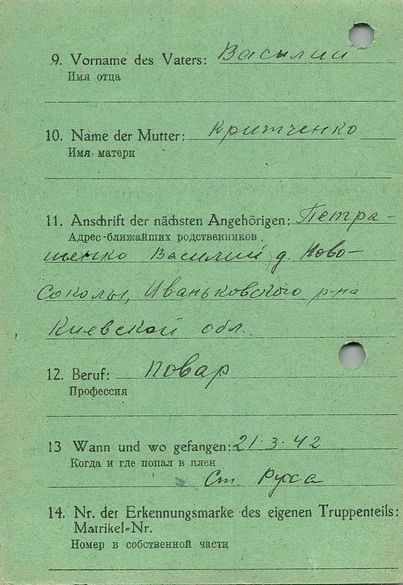 9. Vorname des Vaters: Василий
Имя отца
10. Name der Mutter: Критченко
Имя матери
11. Anschrift der nächsten Angehörigen: Петра-
Адрес ближайших родственников
шенко Василий д. Ново-
соколы, Иваньковского р-на
Киевской обл.
12. Beruf: Повар
Профессия
13 Wann und wo gefangen: 21.3.42
Когда и где попал в плен
Ст. Русса
14. Nr. der Erkennungsmarke des eigenen Truppenteils:
Matrikel-Nr.
Номер в собственной части